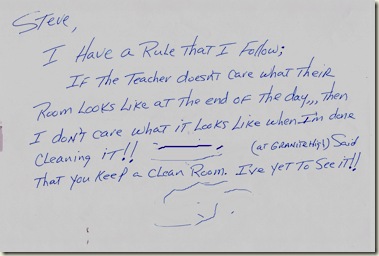 Steve,
I Have a Rule that I Follow;
If the Teacher doesn't care what their
Room Looks Like at the end of the day,,, then
I don't care what it Looks Like when I'm done
cleaning it!! (at Granite High) Said
that you keep a clean Room. I've yet to see it!!